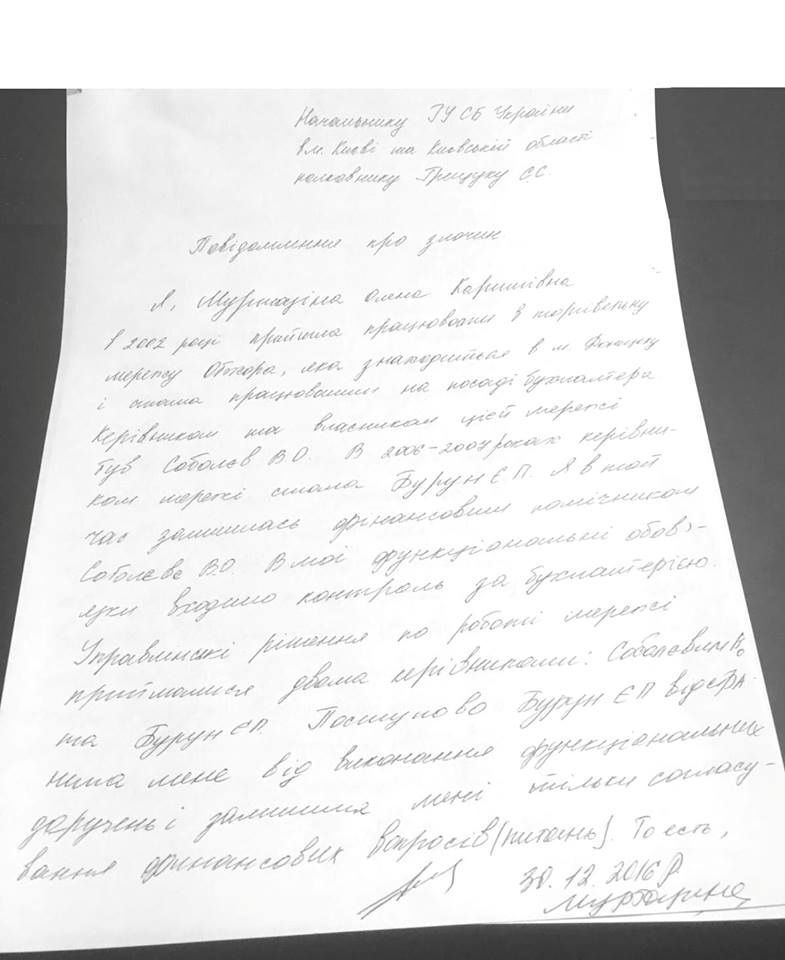 Начальнику ГУ СБ України
в м. Києві та Київській області
полковнику Грищуку С.С.
Повідомлення про злочин
Я, Олена Каримівна
в 2002 році прийшла працювати в торгівельну
мережу Обжора, яка знаходиться в м. Донецьку
і стала працювати на посаді бухгалтера
Керівником та власником цієї мережі
був Соболєв В.О. В 2006-2007 роках керівни-
ком мережі стала Бурун Є.П. Я в той
час залишилась фінансовим помічником
Соболєва В.О. В мої функціональні обов'-
язки входило контроль за бухгалтерією.
Управлінські рішення по роботі мережі
приймалися двома керівниками: Соболєвим В.О
та Бурун Є.П. Поступово Бурун Є.П відстра-
нила мене від виконання функціональних
доручень і залишила мені тільки согласу-
вання фінансових вопросів (питань). То есть,
30.12.2016 р